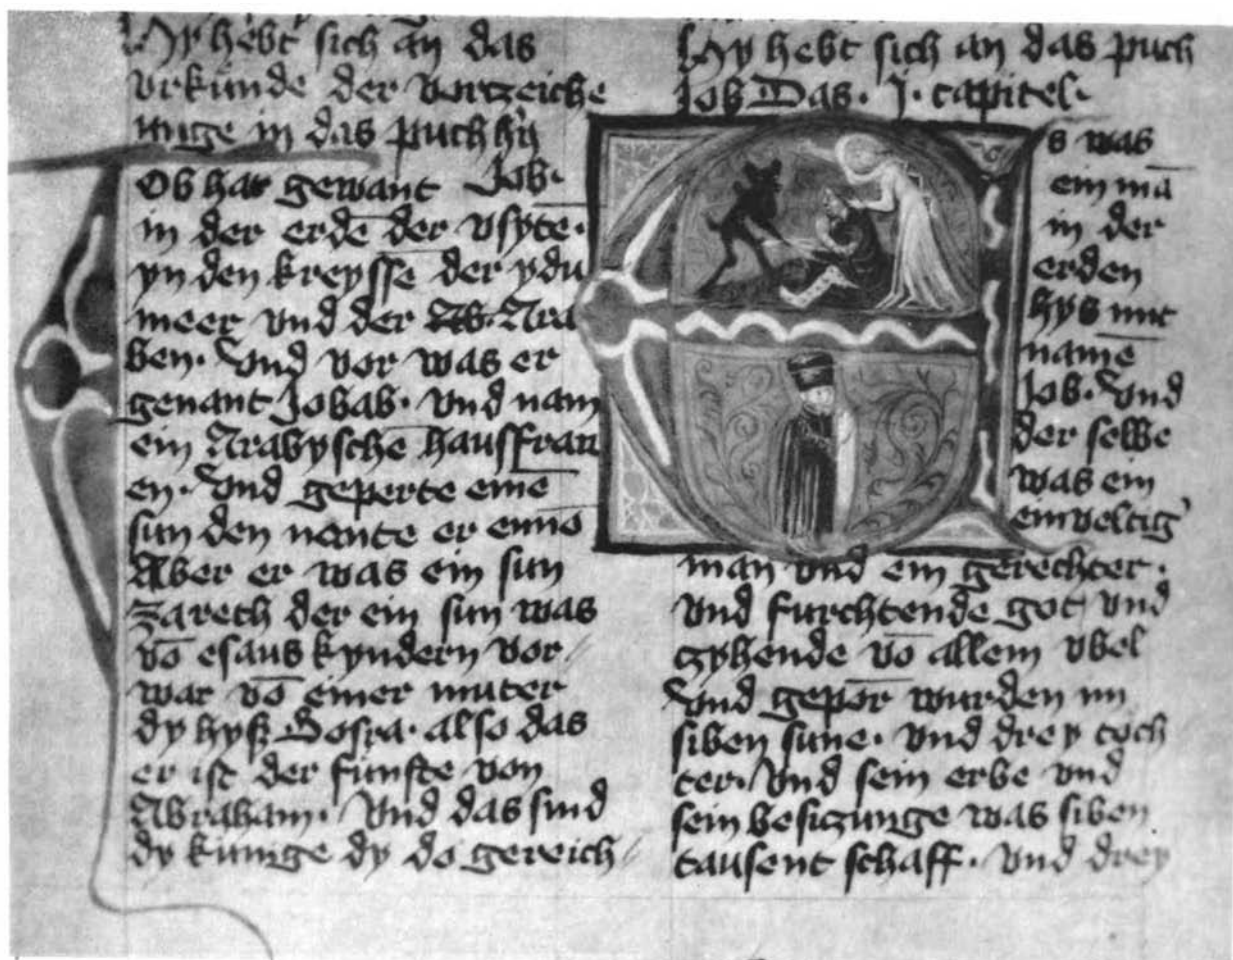 Hy hebt sich an das
vrkunde der vorzeiche
nunge in das puch hy
Ob hat gewant Job·
in der erde der vsyte·
yn den kreysse der ydu
meer vnd der Ab· Ara
ben· Vnd vor was er
genant Jobab· vnd nam
ein Arabysche hausfraw
en· Vnd geperte eine
sun den nante er enno
Aber er was ein sun
zarech der ein sun was
vō esaus kyndern vor
war vō einer muter
dy hyſz Bosra· also das
er ist der funfte von
Abraham· Vnd das sind
dy kunige dy do gereich
Hy hebt sich an das puch
Job Das· J· capitel·
s was
ein mā
in der
erden
hys mit
name
Job· Vnd
der selbe
was ein
einveltig'
man vnd ein gerechter·
vnd furchtende got vnd
zyhende vō allem vbel
Vnd gepor wurden im
siben sune· vnd drey toch
ter· Vnd sein erbe vnd
sein besiczunge was siben
tausent schaff· vnd drey